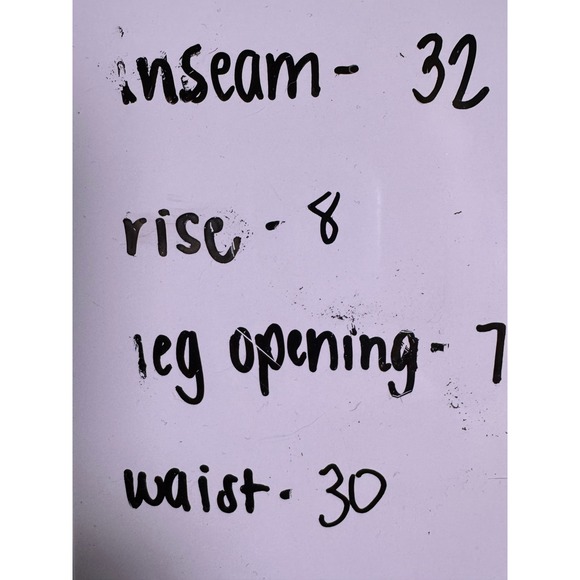 inseam - 32
rise - 8
leg opening - 7
waist - 30